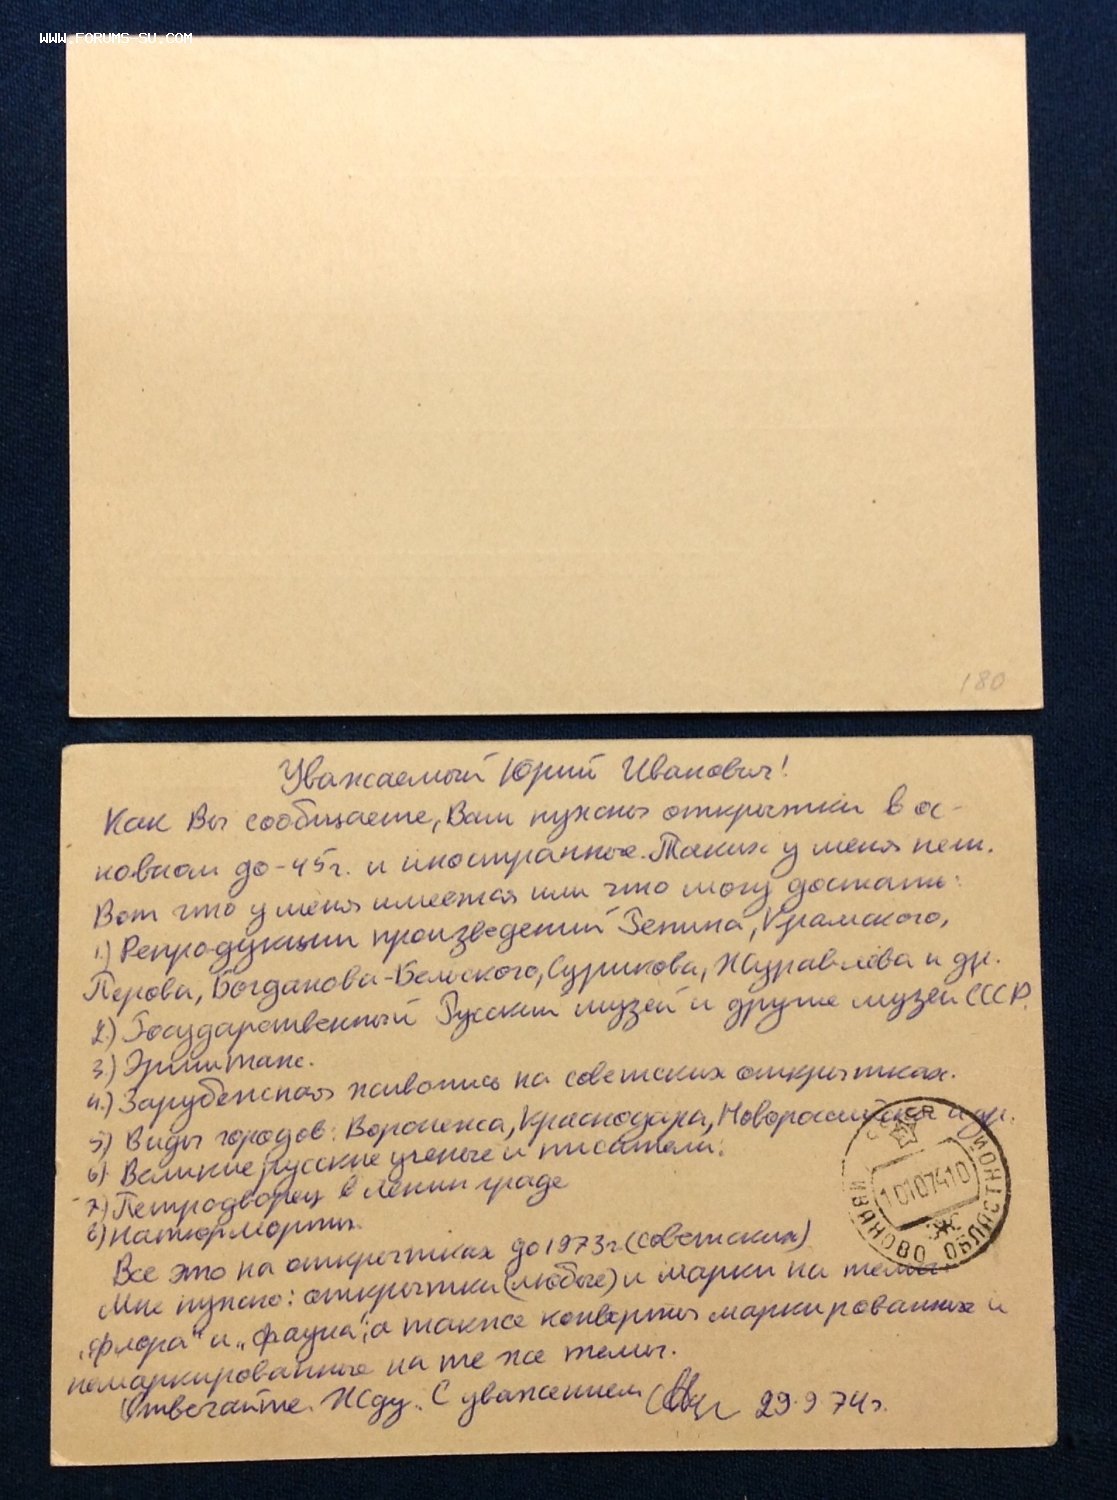 WWW.FORUMS-SU.COM
180
Уважаемый Юрий Иванович!
Как Вы сообщаете, Вам нужны открытки в ос-
новном до -45г. и иностранные. Таких у меня нет.
Вот что у меня имеется или что могу достать:
1.) Репродукции произведений Репина, Крамского,
Перова, Богданова-Бельского, Сурикова, Журавлёва и др.
2.) Государственный Русский музей и другие музеи СССР.
3.) Эрмитаж.
4.) Зарубежная живопись на советских открытках.
5) Виды городов: Воронежа, Краснодара, Новороссийска и др.
6) Великие русские ученые и писатели.
7) Петродворец в Ленинграде
8) Натюрморты.
Все это на открытках до 1973г (советских)
Мне нужно: открытки (любые) и марки на темы
„флора“ и „фауна“, а также конверты маркированные и
немаркированные на те же темы.
Отвечайте. Жду. С уважением 29.9.74г.
ИВАНОВО ОБЛАСТНОЙ